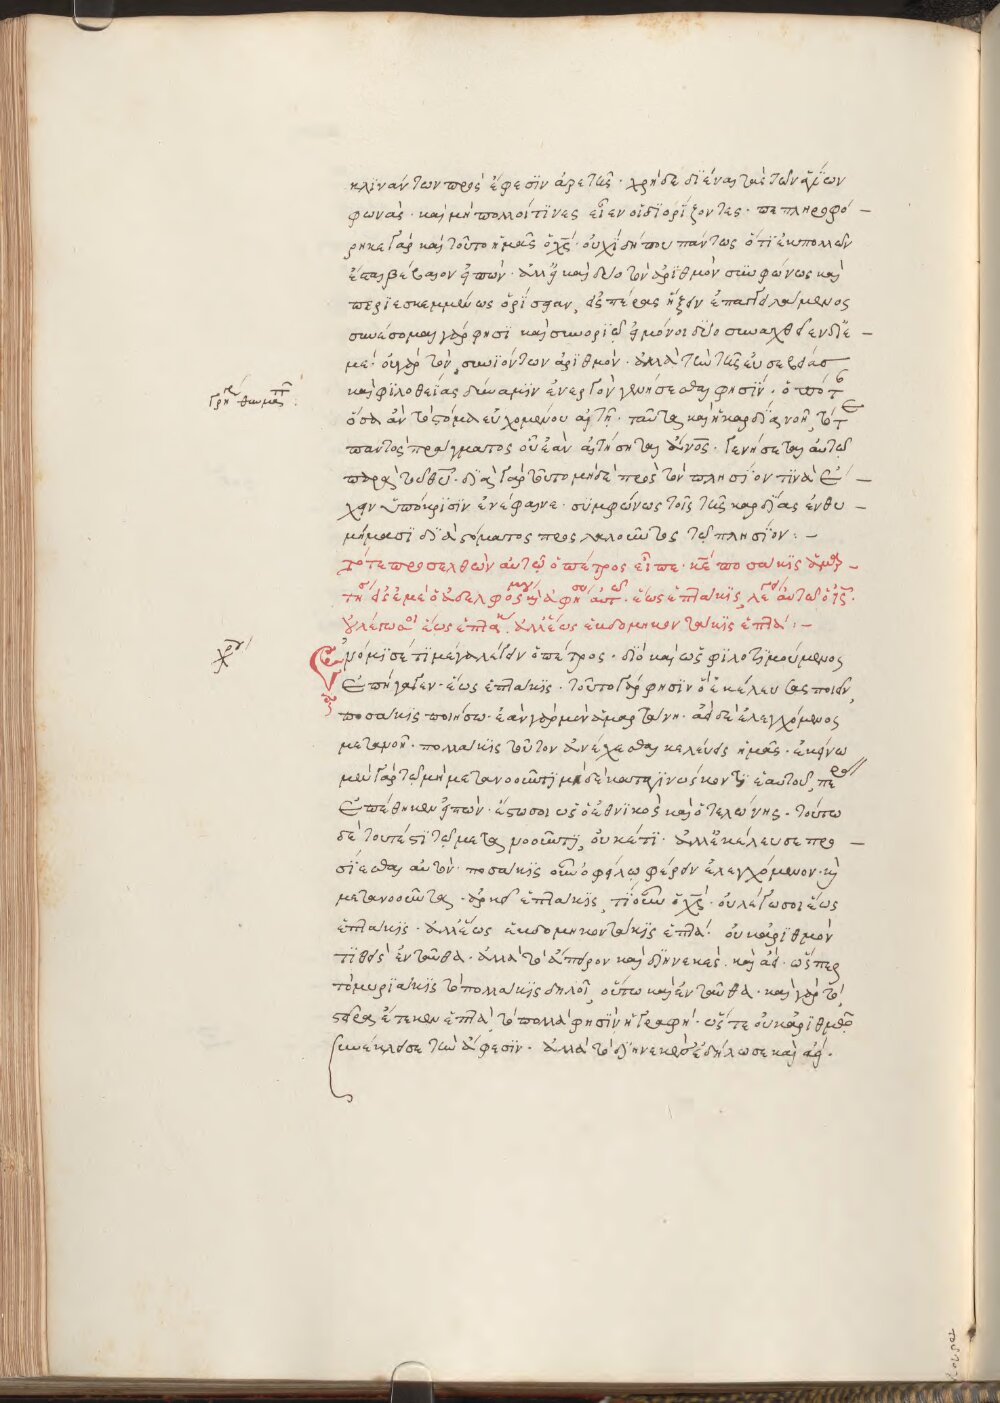 κλϊνάντων πρὸς ἔφεσϊν ἀρετῆς · χρὴ δὲ δϊεῖναι τὰς τῶν ἁγΐων
φωνάς · καὶ μὴ πολλοί τϊνες εἶεν οἱ διορίζοντες · πεπληροφό –
ρηκε γὰρ καὶ τοῦτο ἡμᾶς ὁ χς · οὐχὶ δήπου πάντως ὅτϊ ἐκ πολλῶν
ἔσται βέβαιον εἰπών · ἀλλ' εἰ καὶ δύο τὸν ἀρϊθμὸν συμφώνως καὶ
περϊεσκεμμένως ὁρΐσειαν, εἰς πέρας ἥξειν ἐπαγγειλάμενος
συνέσομαι γάρ φησϊ καὶ συνοριῶ εἰ μόνοι δύο συναχθεῖεν δϊ –
ἐμέ · οὐ γὰρ τὸν συνϊόντων ἀρϊθμόν · ἀλλὰ τὴν τῆς εὐσεβείας
καὶ φιλοθεΐας δύναμϊν ἐνεργὸν γενήσεσθαι φησΐν · ὁπότε
ὅσα ἂν τὸ στόμα εὐχομένου αἰτῇ · ταῦτα καὶ ἡ καρδΐα νοῇ, τότε
παντὸς πράγματος οὗ ἐὰν αἰτήσηται · γενήσεται αὐτῷ
παρὰ τοῦ θυ · δϊὰ γὰρ τοῦτο μηδὲ πρὸς τὸν πλησΐον τϊνὰ ἔ –
χειν ὑπόκρϊσϊν ἐνέφαινε · συμφώνως τοῖς τῆς καρδΐας ἐνθυ –
μήμασϊ δϊὰ στόματος προσλαλοῦντος τῷ πλησΐον : –
Τότε προσελθὼν αὐτῷ ὁ πέτρος εἶπε · κε ποσάκϊς ἁμαρ –
τήσει εἰς ἐμὲ ὁ ἀδελφός μου καὶ ἀφήσω αὐτῷ · ἕως ἑπτάκϊς, λέγει αὐτῷ ὁ ις ·
οὐ λέγω σοι ἕως ἑπτάκις · ἀλλ' ἕως ἑβδομηκοντάκϊς ἑπτά : –
Ἐνόμϊσέ τϊ μέγα λέγειν ὁ πέτρος · δϊὸ καὶ ὡς φϊλοτϊμούμενος
ἐπήγαγεν · ἕως ἑπτάκϊς · τοῦτο γάρ φησϊν ὃ ἐκέλευσας ποιεῖν,
ποσάκϊς ποιήσω · ἐὰν γὰρ μὲν ἁμαρτάνῃ · ἀεὶ δὲ ἐλεγχόμενος
μετανοῇ · πολλάκϊς τοῦτον ἀνέχεσθαι κελεύεις ἡμᾶς · ἐκείνω
μὲν γὰρ τῷ μὴ μετανοοῦντϊ μηδὲ καταγϊνώσκοντϊ ἑαυτοῦ, πέρας
ἐπέθηκας εἰπών · ἔστω σοι ὡς ὁ ἐθνϊκὸς καὶ ὁ τελώνης · τούτω
δὲ τουτέστϊ τῷ μετανοοῦντϊ, οὐκέτϊ · ἀλλ' ἐκέλευσε προ –
σΐεσθαι αὐτόν · ποσάκϊς οὖν ὀφείλω φέρειν ἐλεγχόμενον καὶ
μετανοοῦντα · ἀρκεῖ ἑπτάκϊς, τΐ οὖν ὁ χς · οὐ λέγω σοι ἕως
ἑπτάκϊς · ἀλλ' ἕως ἑβδομηκοντάκϊς ἑπτά · οὐκ ἀρϊθμὸν
τϊθεὶς ἐνταῦθα · ἀλλὰ τὸ ἄπειρον καὶ διηνεκές, καὶ ἀεί · ὥσπερ
τὸ μυρϊάκϊς τὸ πολλάκϊς δηλοῖ, οὕτω καὶ ἐνταῦθα · καὶ γὰρ τὸ,
στεῖρα ἔτεκεν ἑπτά, τὸ πολλά φησϊν ἡ γραφή · ὥστε οὐκ ἀρϊθμῷ
συνέκλεισε τὴν ἄφεσϊν · ἀλλὰ τὸ διηνεκὲς ἐδήλωσε καὶ ἀεί ·